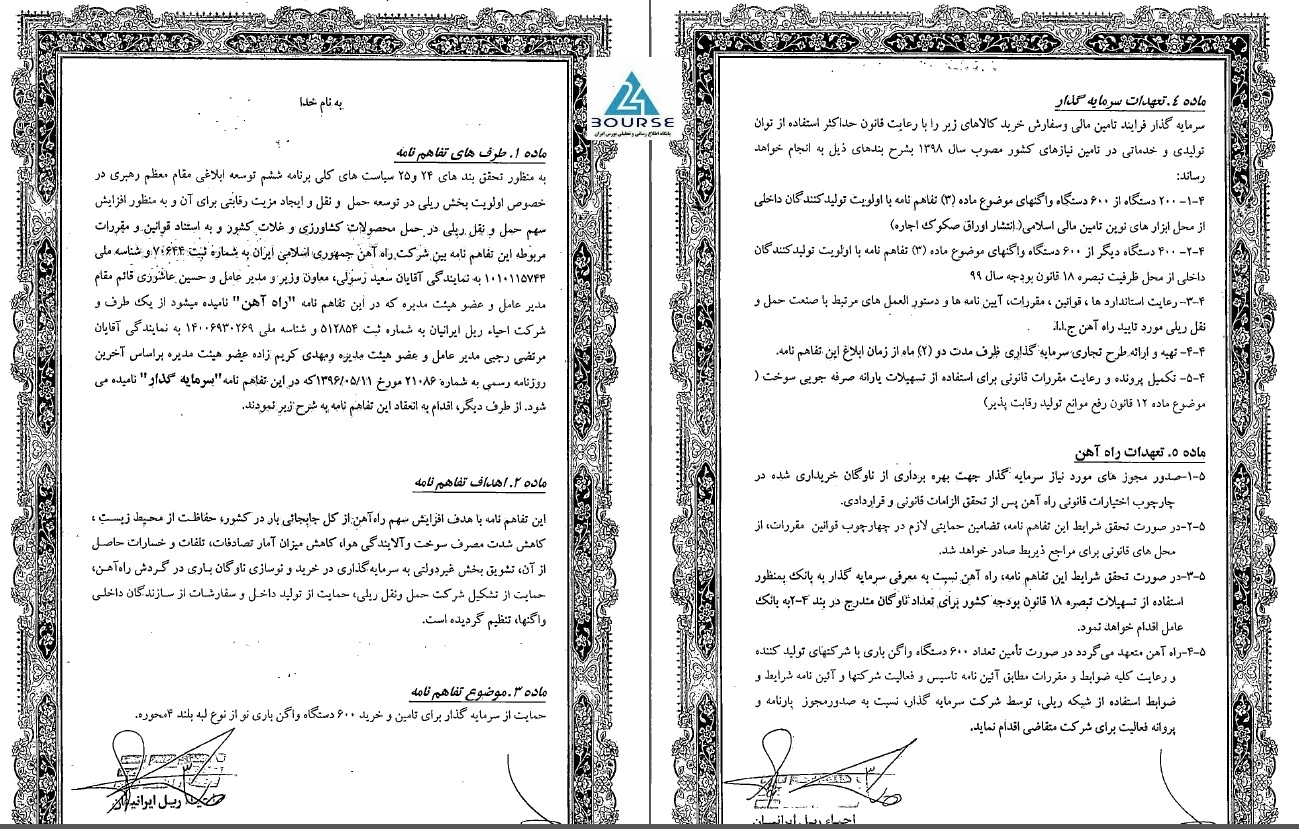 به نام خدا
ماده ۱. طرف های تفاهم نامه
به منظور تحقق بند های ۲۴ و۲۵ سیاست های کلی برنامه ششم توسعه ابلاغی مقام معظم رهبری در
خصوص اولویت بخش ریلی در توسعه حمل و نقل و ایجاد مزیت رقابتی برای آن و به منظور افزایش
سهم حمل و نقل ریلی در حمل محصولات کشاورزی و غلات کشور و به استناد قوانین و مقررات
مربوطه این تفاهم نامه بین شرکت راه آهن جمهوری اسلامی ایران به شماره ثبت ۷۰۶۴۴ و شناسه ملی
۱۰۱۰۱۱۵۷۴۴ به نمایندگی آقایان سعید رسولی، معاون وزیر و مدیر عامل و حسین عاشوری قائم مقام
مدیر عامل و عضو هیئت مدیره که در این تفاهم نامه "راه آهن" نامیده میشود از یک طرف و
شرکت احیاء ریل ایرانیان به شماره ثبت ۵۱۲۸۵۴ و شناسه ملی ۱۴۰۰۶۹۳۰۲۶۹ به نمایندگی آقایان
مرتضی رجبی مدیر عامل و عضو هیئت مدیره ومهدی کریم زاده عضو هیئت مدیره براساس آخرین
روزنامه رسمی به شماره ۲۱۰۸۶ مورخ ۱۳۹۶/۰۵/۱۱که در این تفاهم نامه"سرمایه گذار" نامیده می
شود. از طرف دیگر، اقدام به انعقاد این تفاهم نامه به شرح زیر نمودند.
ماده ۲. اهداف تفاهم نامه
این تفاهم نامه با هدف افزایش سهم راه‌آهن از کل جابجائی بار در کشور، حفاظت از محیط زیست ،
کاهش شدت مصرف سوخت وآلایندگی هوا، کاهش میزان آمار تصادفات، تلفات و خسارات حاصل
از آن، تشویق بخش غیردولتی به سرمایه‌گذاری در خرید و نوسازی ناوگان باری در گردش راه‌آهن،
حمایت از تشکیل شرکت حمل ونقل ریلی، حمایت از تولید داخل و سفارشات از سازندگان داخلی
واگنها، تنظیم گردیده است.
ماده ۳. موضوع تفاهم نامه
حمایت از سرمایه گذار برای تامین و خرید ۶۰۰ دستگاه واگن باری نو از نوع لبه بلند ۴محوره.
ریل ایرانیان
BOURSE
24
پایگاه اطلاع رسانی و تحلیلی بورس ایران
ماده ۴. تعهدات سرمایه گذار
سرمایه گذار فرایند تامین مالی وسفارش خرید کالاهای زیر را با رعایت قانون حداکثر استفاده از توان
تولیدی و خدماتی در تامین نیازهای کشور مصوب سال ۱۳۹۸ بشرح بندهای ذیل به انجام خواهد
رساند:
۴-۱- ۲۰۰ دستگاه از ۶۰۰ دستگاه واگنهای موضوع ماده (۳) تفاهم نامه با اولویت تولیدکنندگان داخلی
از محل ابزار های نوین تامین مالی اسلامی(.انتشار اوراق صکوک اجاره)
۴-۲- ۴۰۰ دستگاه دیگر از ۶۰۰ دستگاه واگنهای موضوع ماده (۳) تفاهم نامه با اولویت تولیدکنندگان
داخلی از محل ظرفیت تبصره ۱۸ قانون بودجه سال ۹۹
۴-۳- رعایت استاندارد ها ، قوانین ، مقررات، آیین نامه ها و دستور العمل های مرتبط با صنعت حمل و
نقل ریلی مورد تایید راه آهن ج.ا.ا.
۴-۴- تهیه و ارائه طرح تجاری سرمایه گذاری ظرف مدت دو (۲) ماه از زمان ابلاغ این تفاهم نامه.
۴-۵- تکمیل پرونده و رعایت مقررات قانونی برای استفاده از تسهیلات یارانه صرفه جویی سوخت (
موضوع ماده ۱۲ قانون رفع موانع تولید رقابت پذیر)
ماده ۵. تعهدات راه آهن
۵-۱-صدور مجوز های مورد نیاز سرمایه گذار جهت بهره برداری از ناوگان خریداری شده در
چارچوب اختیارات قانونی راه آهن پس از تحقق الزامات قانونی و قراردادی.
۵-۲-در صورت تحقق شرایط این تفاهم نامه، تضامین حمایتی لازم در چهارچوب قوانین مقررات، از
محل های قانونی برای مراجع ذیربط صادر خواهد شد.
۵-۳-در صورت تحقق شرایط این تفاهم نامه، راه آهن نسبت به معرفی سرمایه گذار به بانک بمنظور
استفاده از تسهیلات تبصره ۱۸ قانون بودجه کشور برای تعداد ناوگان مندرج در بند ۴-۲به بانک
عامل اقدام خواهد نمود.
۵-۴-راه آهن متعهد می‌گردد در صورت تأمین تعداد ۶۰۰ دستگاه واگن باری با شرکتهای تولید کننده
و رعایت کلیه ضوابط و مقررات مطابق آئین نامه تاسیس و فعالیت شرکتها و آئین نامه شرایط و
ضوابط استفاده از شبکه ریلی، توسط شرکت سرمایه گذار، نسبت به صدورمجوز بارنامه و
پروانه فعالیت برای شرکت متقاضی اقدام نماید.
احیاء ریل ایرانیان